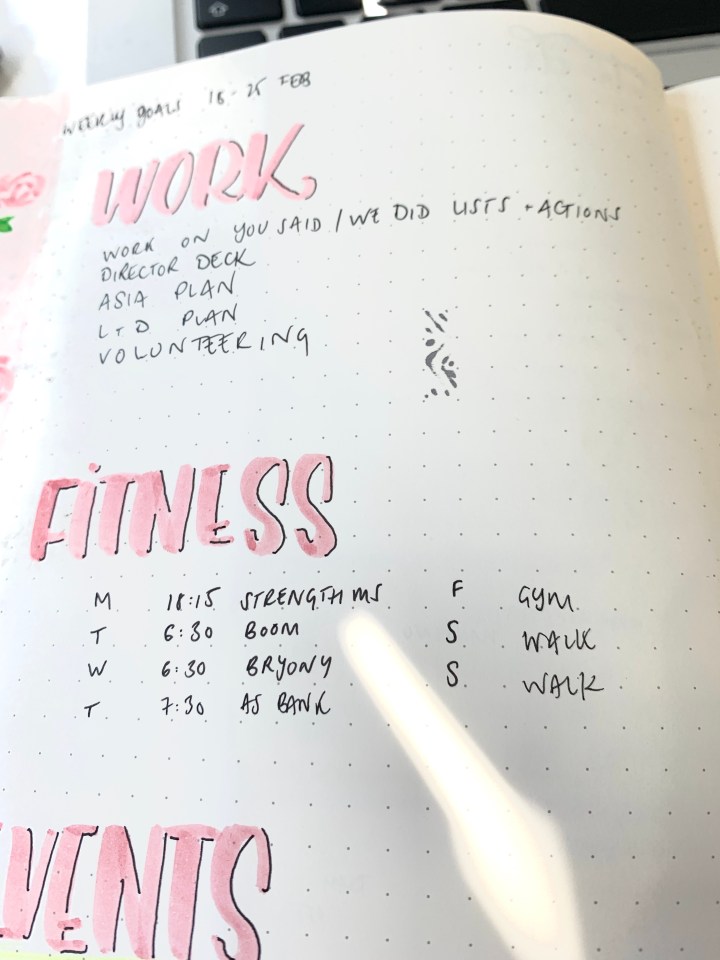 WEEKLY GOALS 18-25 FEB
WORK
WORK ON YOU SAID / WE DID LISTS + ACTIONS
DIRECTOR DECK
ASIA PLAN
L+D PLAN
VOLUNTEERING
FITNESS
M 18:15 STRENGTH MS F GYM
T 6:30 BOOM S WALK
W 6:30 BRYONY S WALK
T 7:30 AS BANK
EVENTS